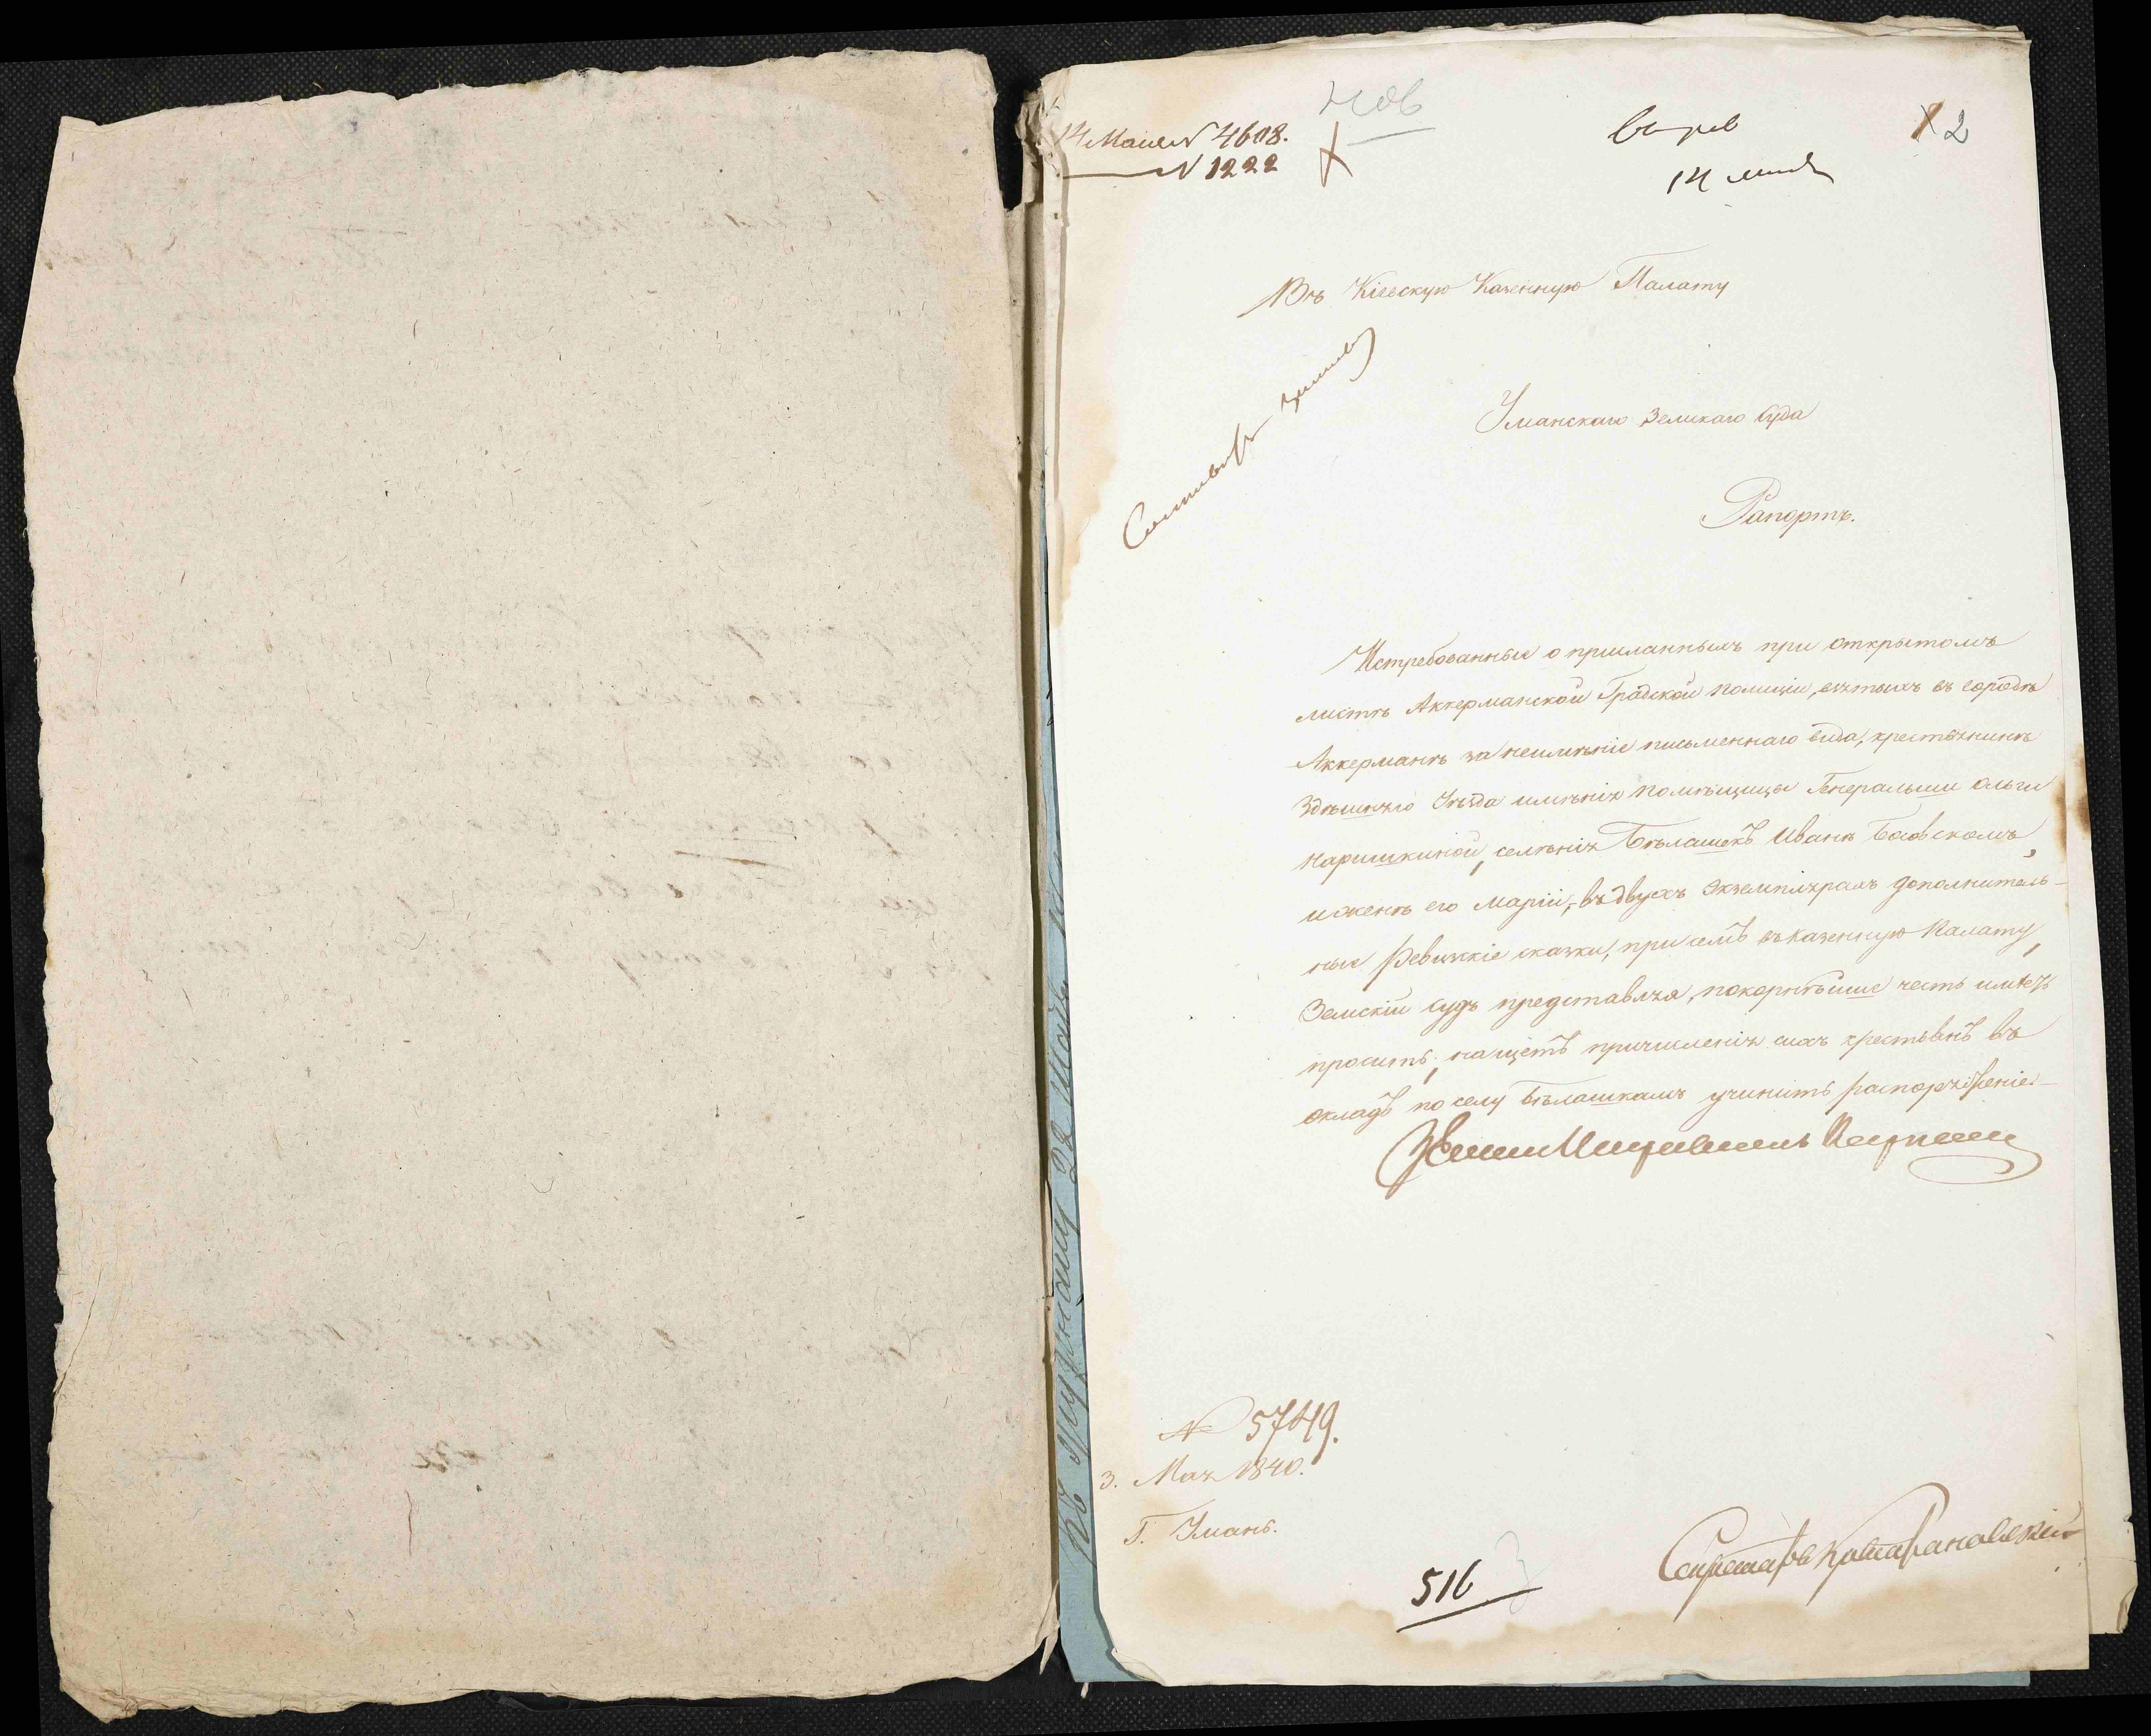 14 Мая N 4608.
N 1222
2
14 мая
Въ Кіевскую Казенную Палату
Уманскаго Земскаго Суда
Рапортъ.
Истребованные о присланныхъ при открытомъ
листѣ Аккерманской Градской полиціи, взятыхъ въ городѣ
Аккерманѣ за неимѣніе письменнаго вида, крестьянинѣ
Здѣшняго Уѣзда имѣнія помѣщицы Генеральши Ольги
Наришкиной, селенія Бѣлашекъ Иванѣ
и женѣ его Маріи, въ двухъ экземплярахъ дополнитель-
ные Ревизкіе сказки, при семъ въ Казенную Палату,
Земскій Судъ представляя, покорнѣйше честь имѣетъ
просить, на щетъ причисленія сихъ крестьянъ въ
окладъ по селу Бѣлашкамъ учинить распоряженіе.
N 5749.
3. Мая 1840.
Г. Умань.
516
Секретарь